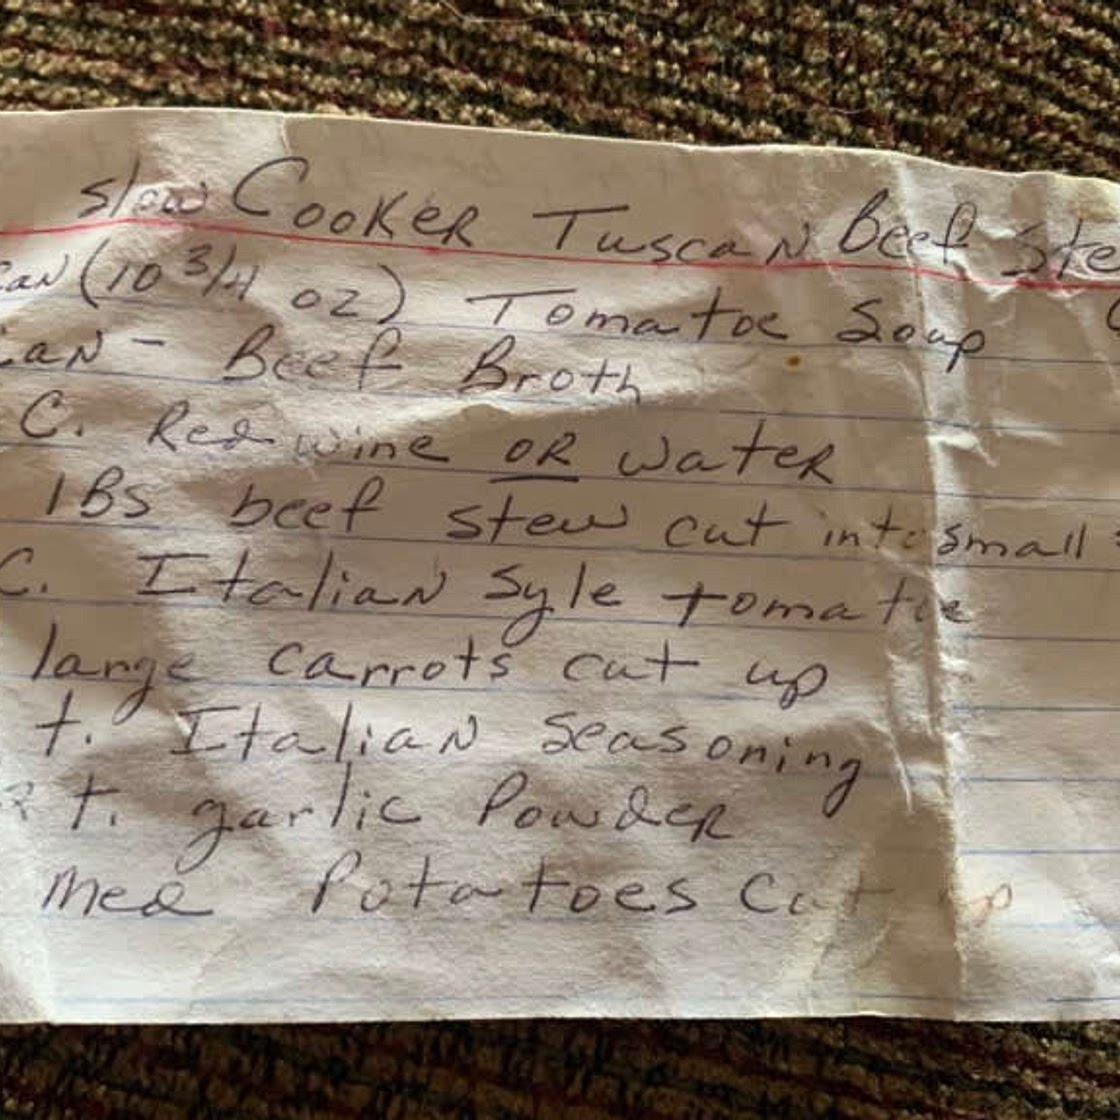 slow Cooker Tuscan Beef Ste
can (10 3/4 oz) Tomatoe Soup
can - Beef Broth
C. Red wine OR water
lBs beef stew cut into small
C. Italian Syle tomatoe
large carrots cut up
t. Italian Seasoning
t. garlic Powder
Med Potatoes Cut up